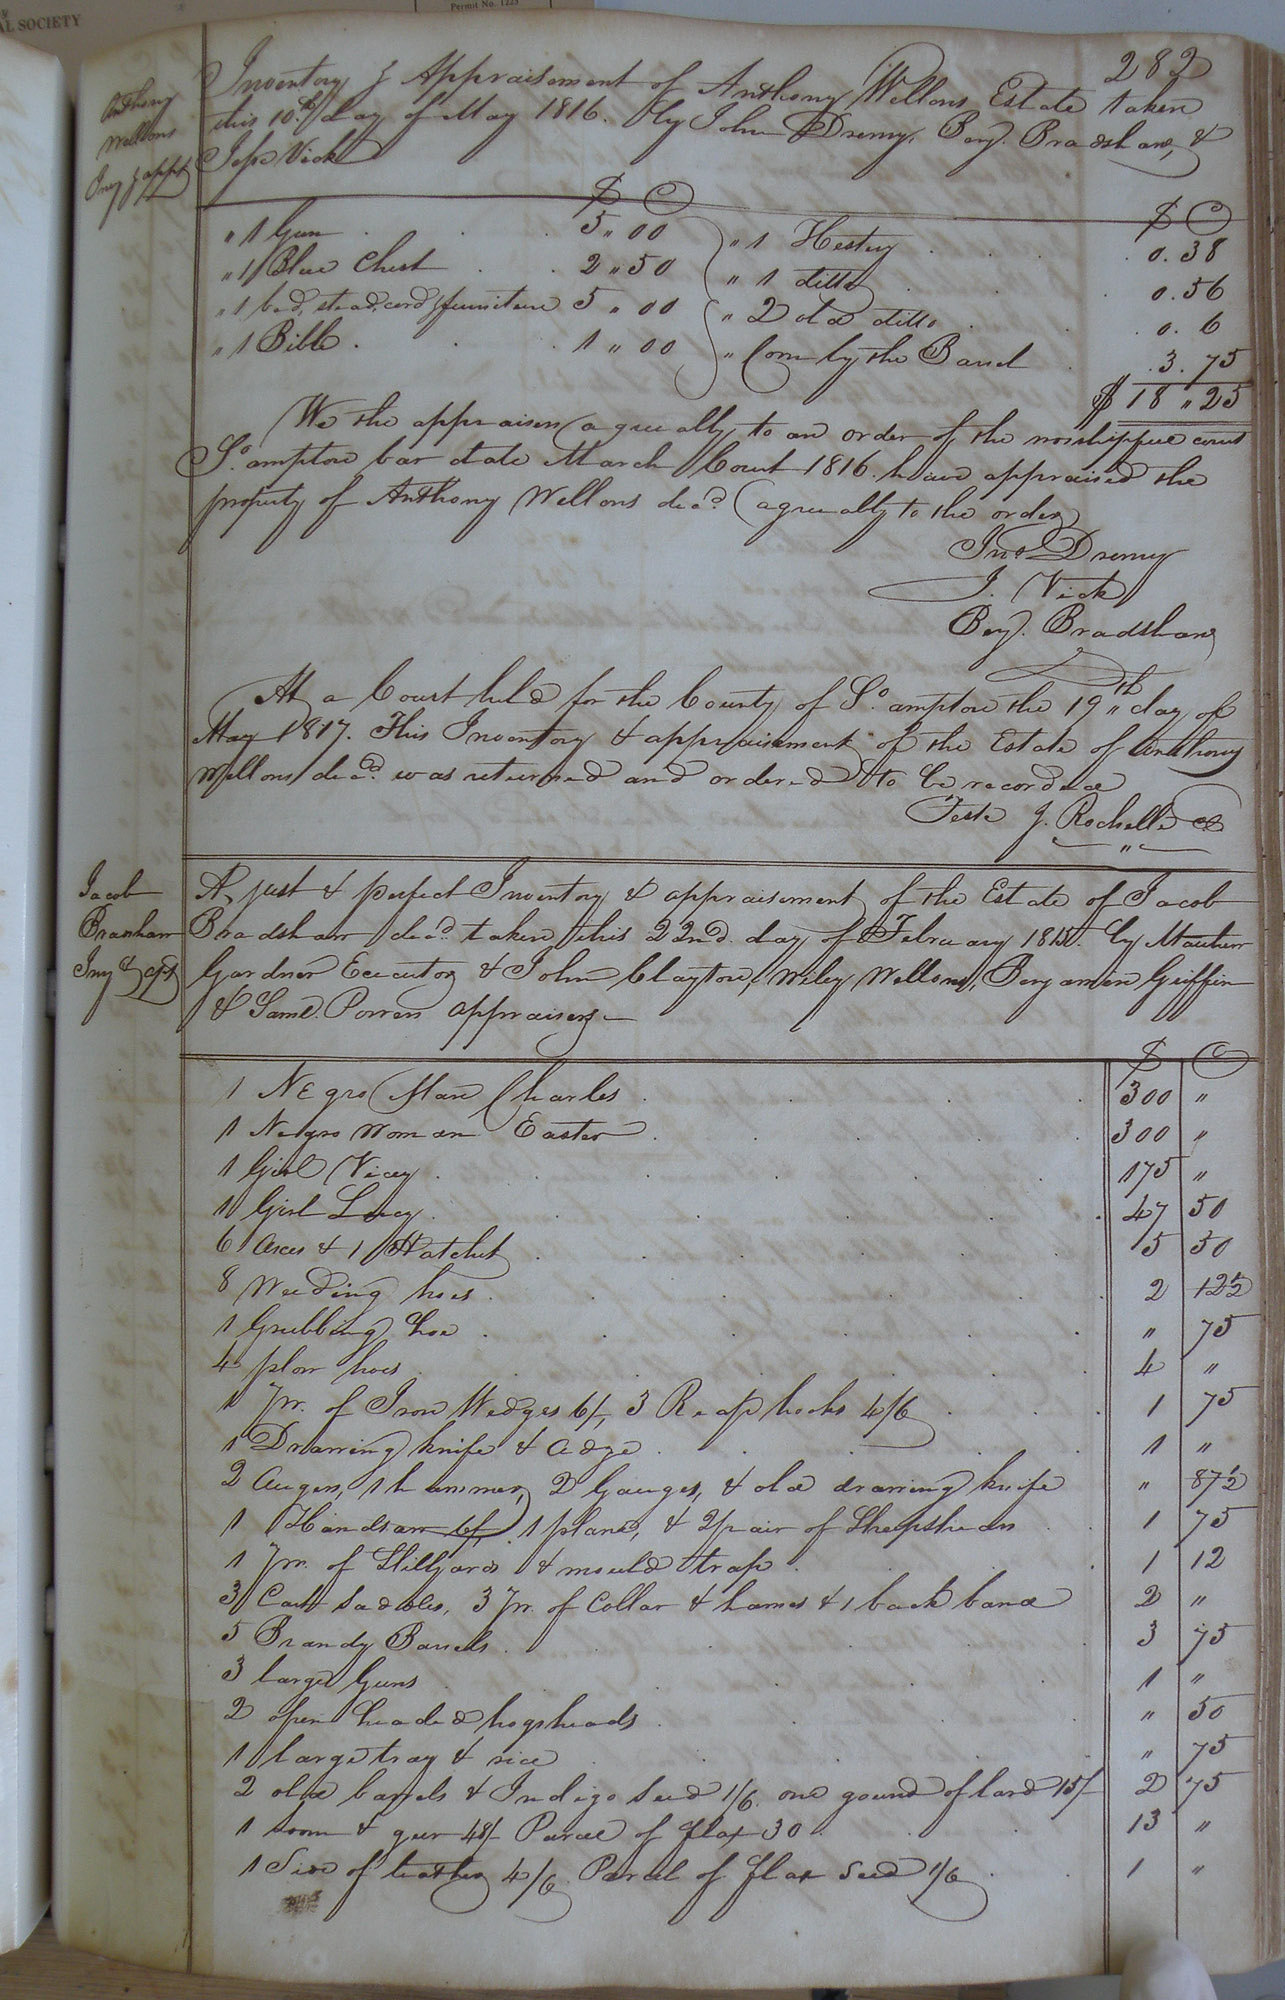 AL SOCIETY
Permit No. 1225
282
Anthony
Wellons
Invy & appt
Inventory & Appraisement of Anthony Wellons Estate taken
this 10th day of May 1816. by John Drewry, Benj. Bradshaw, &
Jesse Vick
$ C $ C
" 1 Gun 5 " 00 " 1 0. 38
" 1 Blue Chest 2 " 50 " 1 ditto 0. 56
" 1 bed, stead, cord & furniture 5 " 00 " 2 old ditto 0. 6
" 1 Bible 1 " 00 " Corn by the Barrel 3. 75
$ 18 " 25
We the appraisers agreeably to an order of the worshipfull court
So. ampton bar date March Court 1816. have appraised the
property of Anthony Wellons decd. agreeably to the order
Jno. Drewry
J. Vick
Benj. Bradshaw
At a Court held for the County of So. ampton the 19th day of
May 1817. This Inventory & appraisement of the Estate of Anthony
Wellons decd. was returned and ordered to be recorded
Teste J. Rochelle CC
Jacob
Invy & appt
A just & perfect Inventory & appraisement of the Estate of Jacob
Bradshaw decd. taken this 22nd. day of February 1815. by Mathew
Gardner Executor & John Clayton, Wiley Wellons, Benjamin Griffin
& Saml. Powers appraisers
$ C
1 Negro Man Charles 300 "
1 Negro Woman Easter 300 "
1 Girl Vicey 175 "
1 Girl Lucy 47 50
6 Axes & 1 Hatchet 5 50
8 Weeding hoes 2 12½
1 Grubbing hoe " 75
4 plow hoes 4 "
1 pr. of Iron Wedges 6/, 3 Reaphooks 4/6 1 75
1 Drawing knife & adze 1 "
2 Augers, 1 hammer, 2 Gauges, & old drawing knife " 87½
1 Handsaw 6/, 1 plane, & 2 pair of Sheepshears 1 75
1 pr. of Stillyards & mould trap 1 12
3 Cart Saddles, 3 pr. of Collar & hames & 1 back band 2 "
5 Brandy Barrels 3 75
3 large Gums 1 "
2 open headed hogsheads " 50
1 large tray & rice " 75
2 old barrels & Indigo Seed 1/6. one gound of lard 15/ 2 75
1 Loom & geer 48/ Parcel of flax 30 13 "
1 Side of leather 4/6 Parcel of flax Seed 1/6 1 "